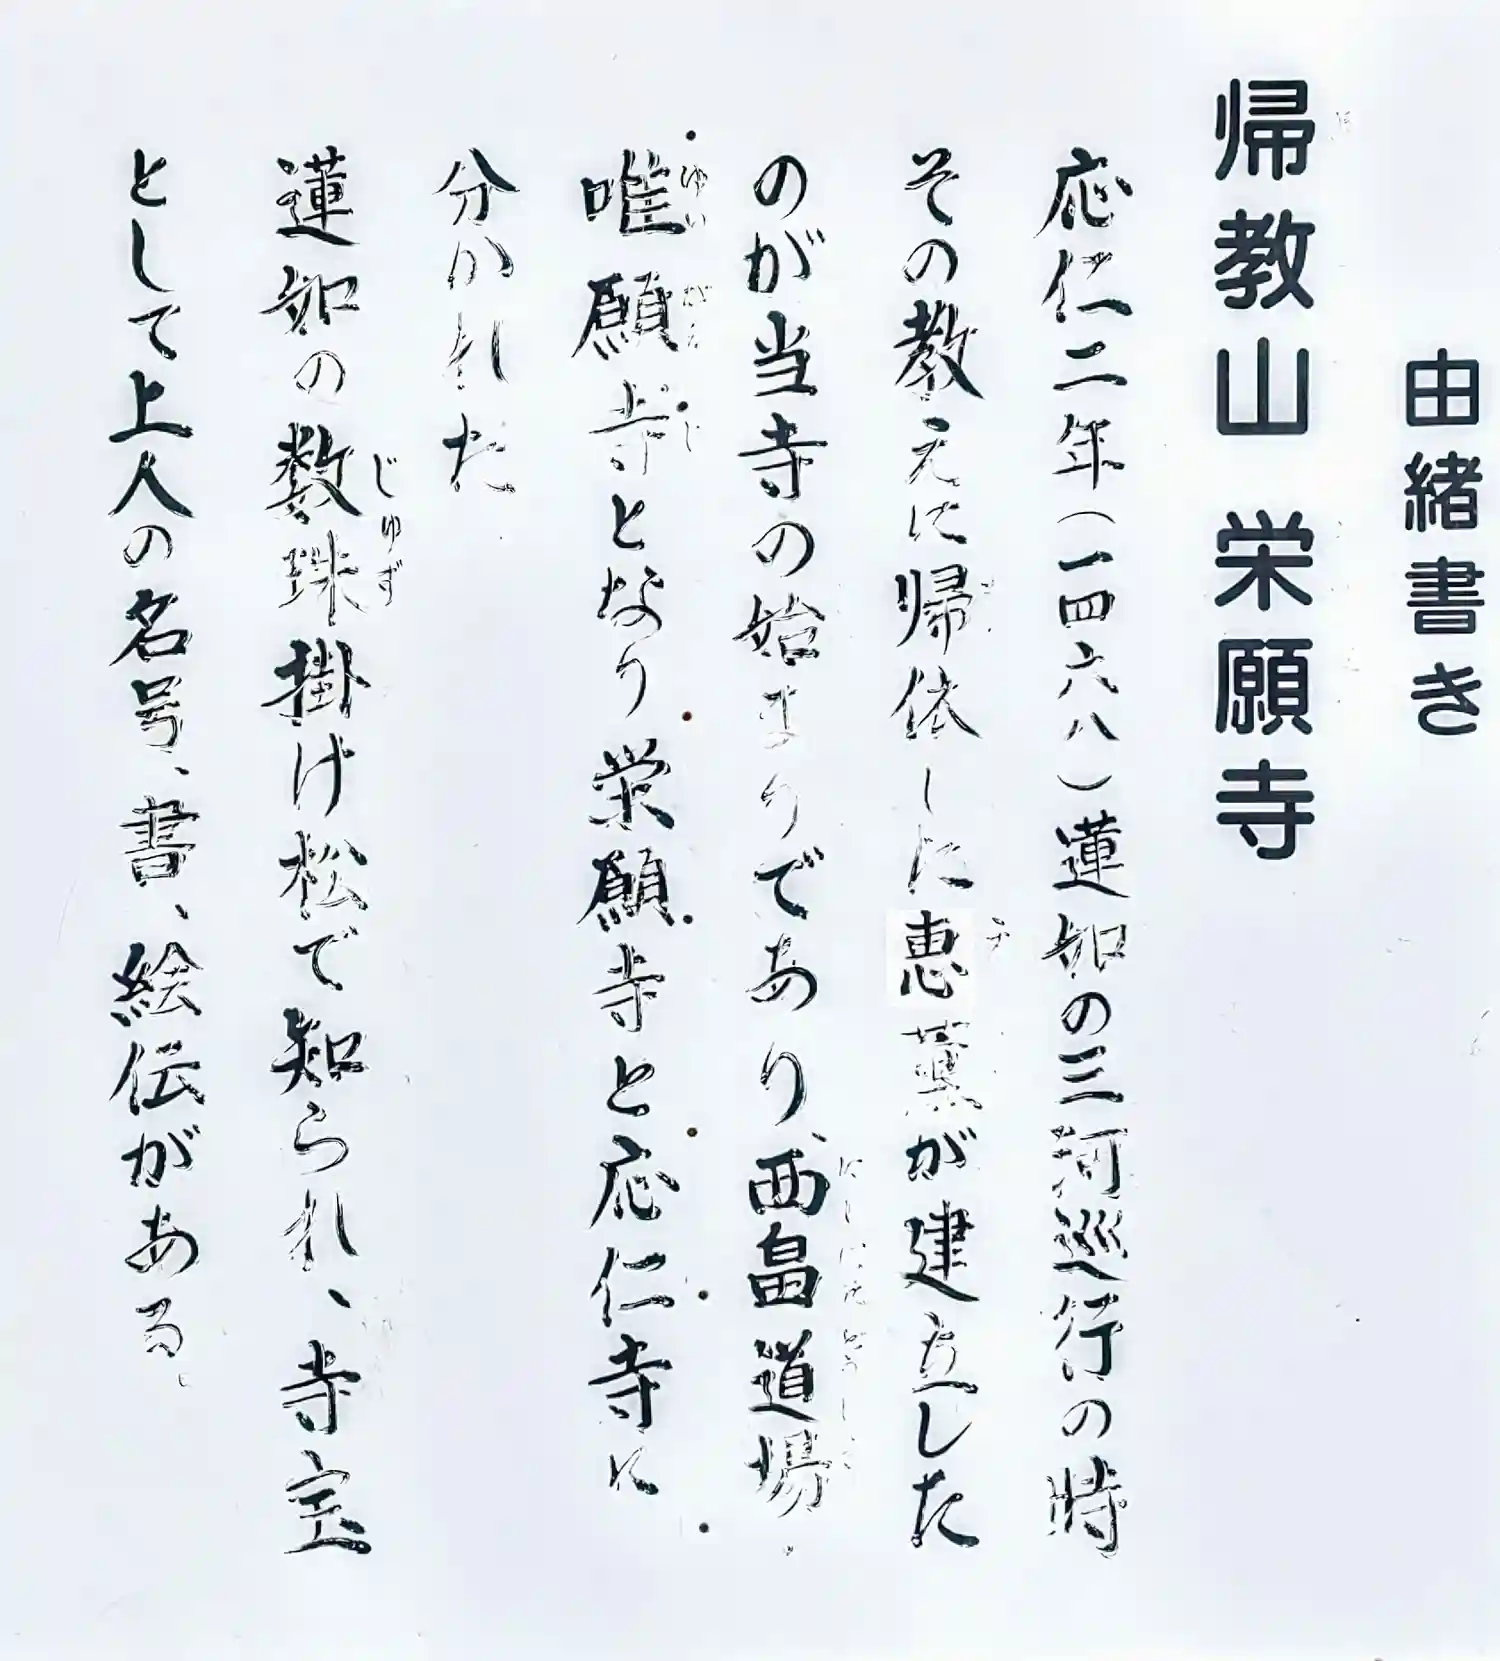 由緒書き
帰教山 栄願寺
応仁二年(一四六八)蓮如の三河巡行の時
その教えに帰依した恵薫が建立した
のが当寺の始まりであり、西畠道場、
唯願寺となり栄願寺と応仁寺に
分かれた
蓮如の数珠掛け松で知られ、寺宝
として上人の名号、書、絵伝がある。